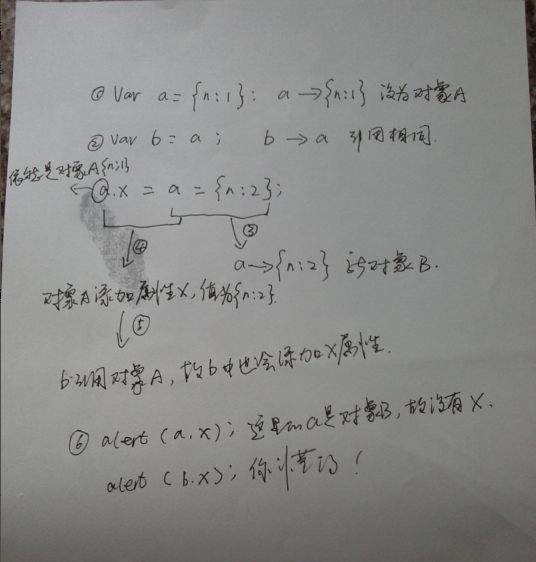 ① Var a = {n:1}; a → {n:1} 设为对象A
② var b = a; b → a 引用相同.
依然是对象A{n:1}
← a.x = a = {n:2};
④ ③
a → {n:2} 设对象B.
对象A添加属性X,值为{n:2}.
⑤
b引用对象A,故b中也会添加X属性.
⑥ alert (a.x); 这里的a是对象B,故没有X.
alert (b.x); 你懂的!